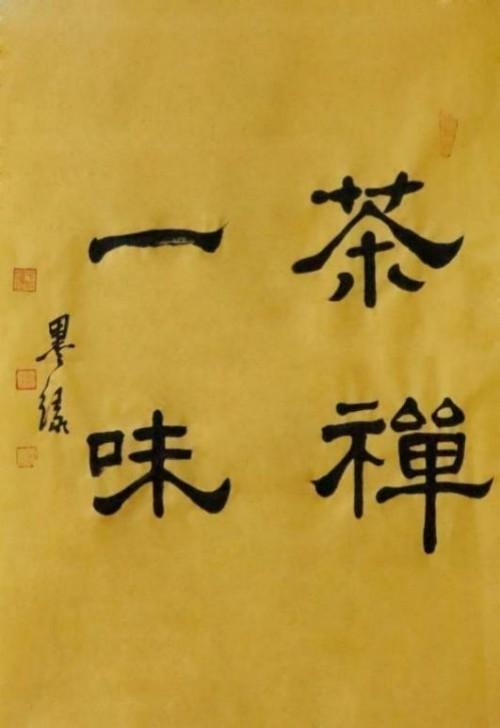 茶禪
一味
墨缘